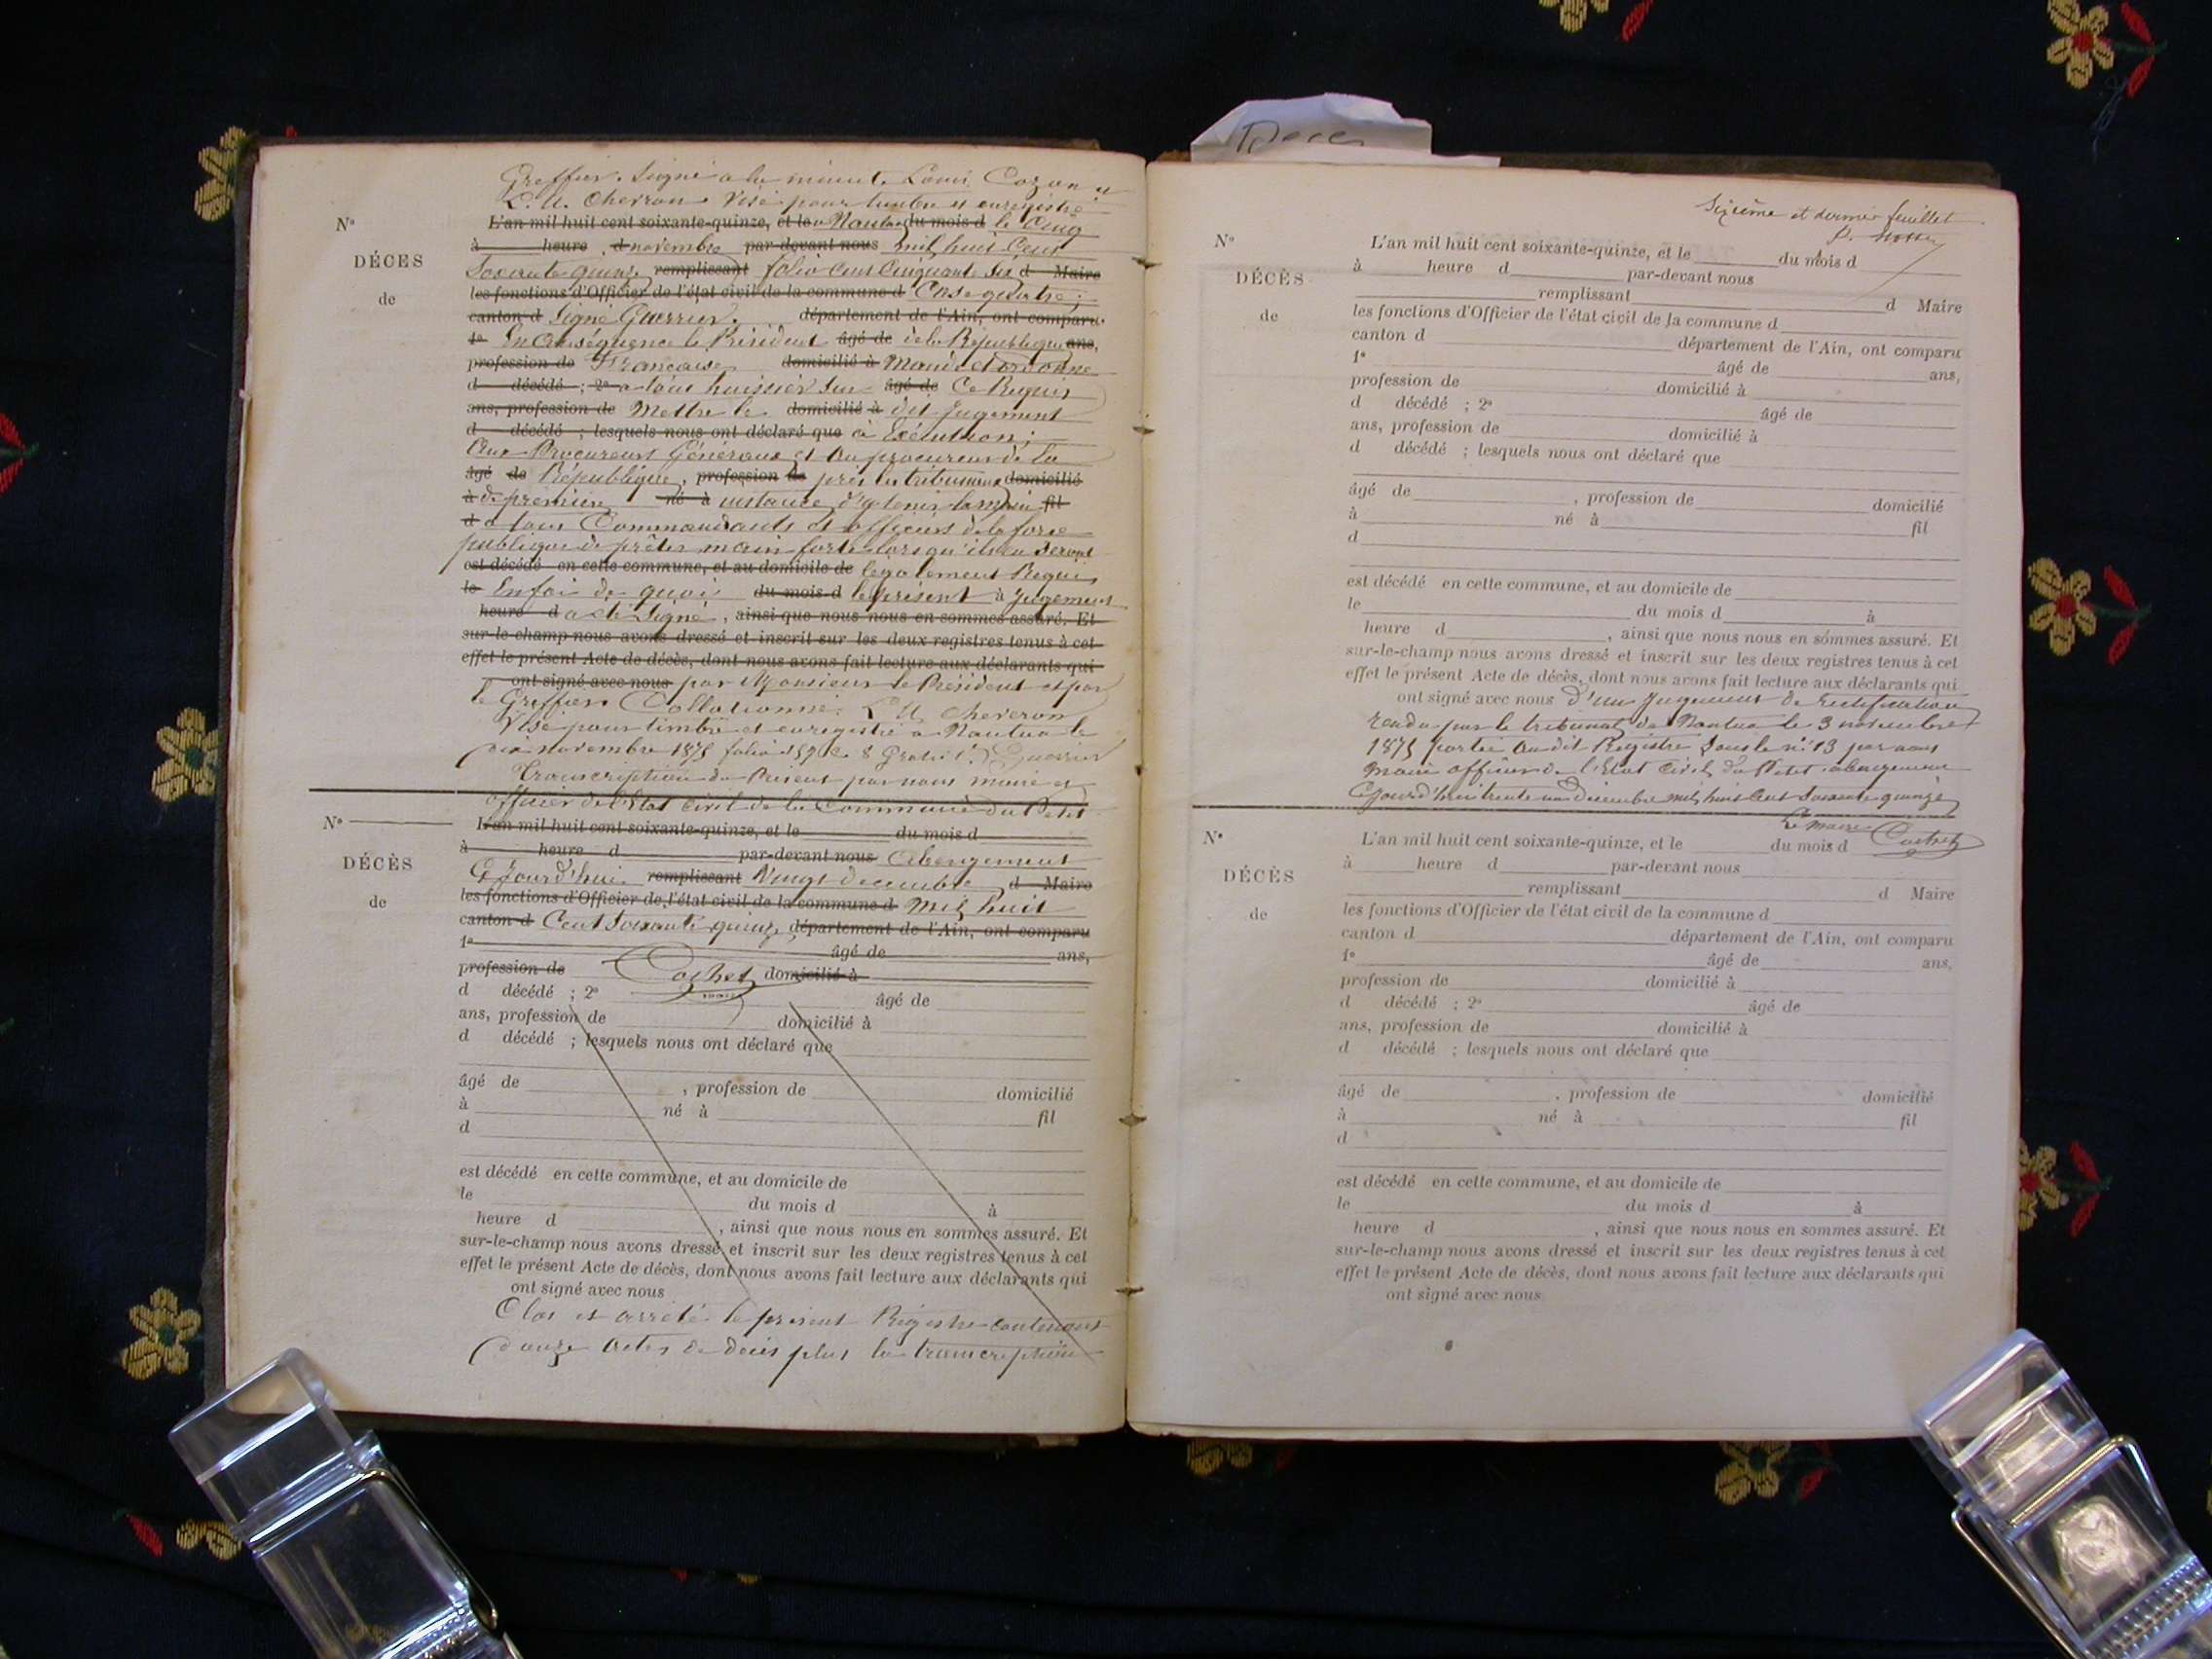 Décès
Greffier. Signé a la minute Louis Cozon et
L. U. Chevron Visé pour timbre et enregistré
No
L'an mil huit cent soixante-quinze, et le a Nantua du mois d le Cinq
à heure d novembre par-devant nous mil huit Cent
DÉCES
Soixante quinze remplissant folio Cent Cinquante Six d Maire
les fonctions d'Officier de l'état civil de la commune d Case quatre;
de
canton d Signé Guerrier. département de l'Ain, ont comparu
1o En Conséquence le Président âgé de de la République ans,
profession de Française domicilié à Mande et ordonne
d décédé ; 2o a tous huissier sur âgé de Ce Requis
ans, profession de Mettre le domicilié à dit Jugement
d décédé ; lesquels nous ont déclaré que à Exécution;
Aux Procureurs Généraux et Au procureur de la
âgé de République, profession de près les tribunaux domicilié
à de première né à instance d'y tenir la main fil
d a tous Commandants et officiers de la force
publique de prêter main forte lorsqu'ils en seront
est décédé en cette commune, et au domicile de légalement Requis
le En foi de quoi du mois d le présent à Jugement
heure d a été Signé, ainsi que nous nous en sommes assuré. Et
sur-le-champ nous avons dressé et inscrit sur les deux registres tenus à cet
effet le présent Acte de décès, dont nous avons fait lecture aux déclarants qui
ont signé avec nous par Monsieur le Président et par
le Greffier. Collationné: L U Chevron
Visé pour timbre et enregistré a Nantua le
dix novembre 1875 folio 159 C. 8 Gratis Guerrier
Transcription du Présent par nous maire et
officier de l'Etat Civil de la Commune du Petit
No
L'an mil huit cent soixante-quinze, et le du mois d
à heure d par-devant nous Abergement
DÉCÈS
Cejourd'hui remplissant Vingt decembre d Maire
les fonctions d'Officier de l'état civil de la commune d Mil huit
de
canton d Cent Soixante quinze département de l'Ain, ont comparu
1o âgé de ans,
profession de Cochet domicilié à
d décédé ; 2o âgé de
ans, profession de domicilié à
d décédé ; lesquels nous ont déclaré que
âgé de , profession de domicilié
à né à fil
d
est décédé en cette commune, et au domicile de
le du mois d à
heure d , ainsi que nous nous en sommes assuré. Et
sur-le-champ nous avons dressé et inscrit sur les deux registres tenus à cet
effet le présent Acte de décès, dont nous avons fait lecture aux déclarants qui
ont signé avec nous
Clos et arrêté le présent Régistre contenant
douze actes de décès plus la transcription
Sixième et dernier feuillet
No
L'an mil huit cent soixante-quinze, et le du mois d
à heure d par-devant nous
DÉCÈS
remplissant d Maire
les fonctions d'Officier de l'état civil de la commune d
de
canton d département de l'Ain, ont comparu
1o âgé de ans,
profession de domicilié à
d décédé ; 2o âgé de
ans, profession de domicilié à
d décédé ; lesquels nous ont déclaré que
âgé de , profession de domicilié
à né à fil
d
est décédé en cette commune, et au domicile de
le du mois d à
heure d , ainsi que nous nous en sommes assuré. Et
sur-le-champ nous avons dressé et inscrit sur les deux registres tenus à cet
effet le présent Acte de décès, dont nous avons fait lecture aux déclarants qui
ont signé avec nous d'un Jugement de rectification
rendu par le tribunal de Nantua le 3 novembre
1875 portée Audit Registre Sous le no 13 par nous
maire officier de l'Etat Civil du Petit abergement
Cejourd'hui trente un Decembre mil huit Cent Soixante quinze
Le maire Cochet
No
L'an mil huit cent soixante-quinze, et le du mois d
à heure d par-devant nous
DÉCÈS
remplissant d Maire
de
les fonctions d'Officier de l'état civil de la commune d
canton d département de l'Ain, ont comparu
1o âgé de ans,
profession de domicilié à
d décédé ; 2o âgé de
ans, profession de domicilié à
d décédé ; lesquels nous ont déclaré que
âgé de , profession de domicilié
à né à fil
d
est décédé en cette commune, et au domicile de
le du mois d à
heure d , ainsi que nous nous en sommes assuré. Et
sur-le-champ nous avons dressé et inscrit sur les deux registres tenus à cet
effet le présent Acte de décès, dont nous avons fait lecture aux déclarants qui
ont signé avec nous